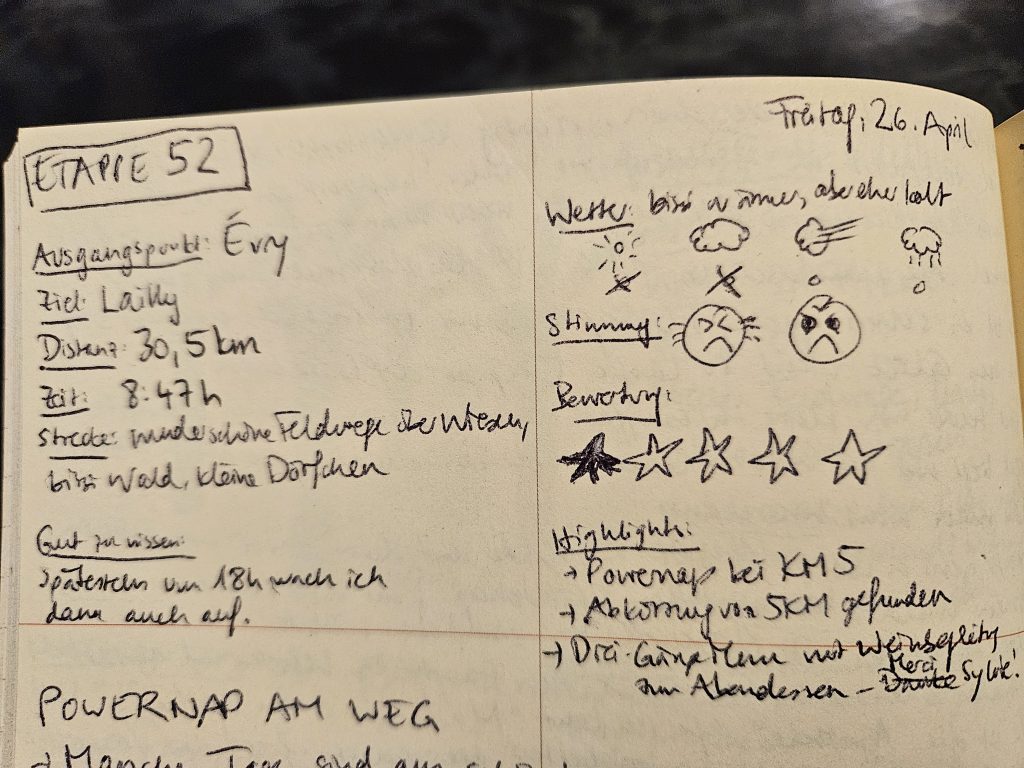 ETAPPE 52
Ausgangspunkt: Évry
Ziel: Lailly
Distanz: 30,5 km
Zeit: 8:47 h
Strecke: wunderschöne Feldwege über Wiesen,
bissi Wald, kleine Dörfchen
Gut zu wissen:
Spätestens um 18h wach ich
dann auch auf.
POWERNAP AM WEG
Manche Tage sind
Freitag, 26. April
Wetter: bissi wärmer, aber eher kalt
Stimmung:
Bewertung:
Highlights:
→ Powernap bei KM 5
→ Abkürzung von 5KM gefunden
→ Drei-Gänge Menu mit Weinbegleitg
Merci
zum Abendessen – Danke Sylvie!